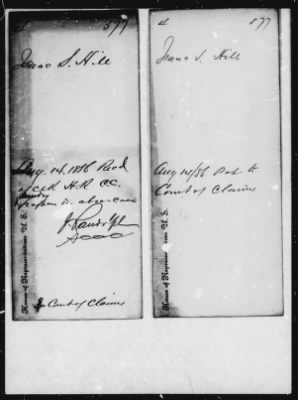 4 577
Isaac S. Hill
Aug. 14. 1886 Recd
of Clk H.R. CC.
papers in above case
J Randolph
House of Representatives U.S.
Court of Claims
4 577
Isaac S. Hill
Aug 14/86
Court of Claims
House of Represen U.S.